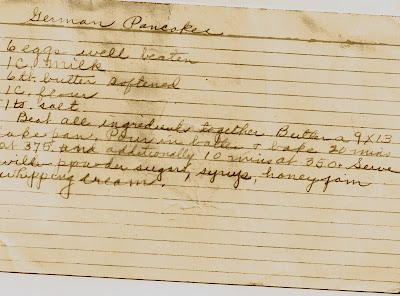 German Pancakes
6 eggs well beaten
1 C. milk
6 tt. butter softened
1 C. flour
1 ts. salt.
Beat all ingredients together. Butter a 9x13
cake pan. Pour in batter & bake 20 mins
at 375 and additionally 10 mins at 350. Serve
with powder sugar, syrup, honey jam
whipping cream.